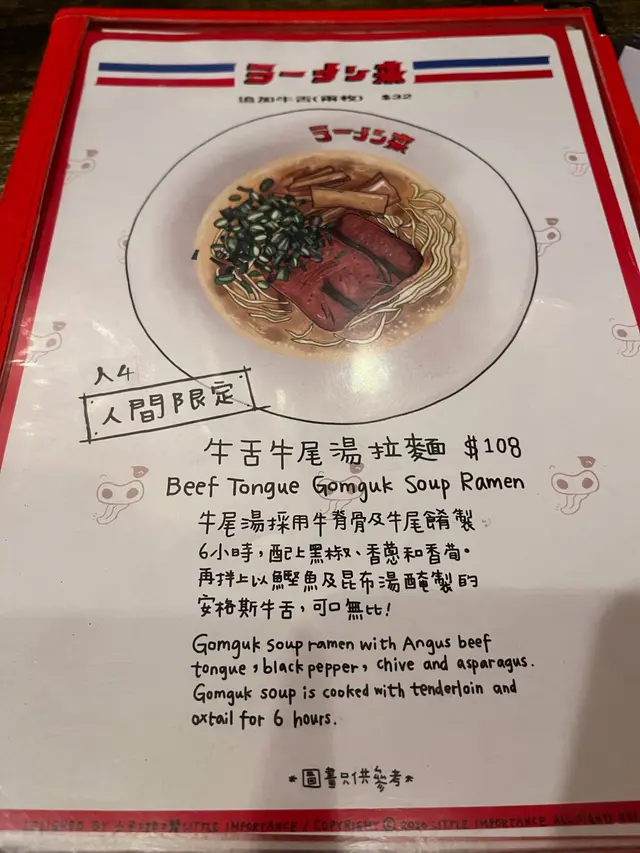 ラーメン來
追加牛舌(兩枚) $32
ラーメン來
人4
人間限定
牛舌牛尾湯拉麵 $108
Beef Tongue Gomguk Soup Ramen
牛尾湯採用牛脊骨及牛尾餚製
6小時，配上黑椒、香蔥和香荀。
再拌上以鰹魚及昆布湯醃製的
安格斯牛舌，可口無比!
Gomguk soup ramen with Angus beef
tongue, black pepper, chive and asparagus.
Gomguk soup is cooked with tenderloin and
oxtail for 6 hours.
*圖畫只供參考*
DESIGNED BY LITTLE IMPORTANCE / COPYRIGHT © 2020 LITTLE IMPORTANCE ALL RIGHTS